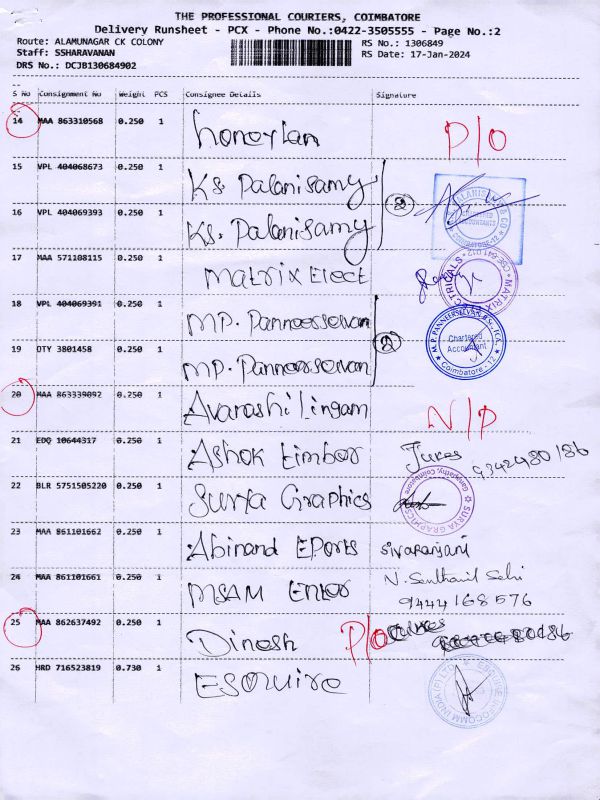 THE PROFESSIONAL COURIERS, COIMBATORE
Delivery Runsheet - PCX - Phone No.:0422-3505555 - Page No.:2
Route: ALAMUNAGAR CK COLONY RS No.: 1306849
Staff: SSHARAVANAN RS Date: 17-Jan-2024
DRS No.: DCJB130684902
S No Consignment No Weight PCS Consignee Details Signature
14 MAA 863310568 0.250 1 Honeylan P/O
15 VPL 404068673 0.250 1 Ks. Palanisamy
16 VPL 404069393 0.250 1 Ks. Palanisamy 2
17 MAA 571108115 0.250 1 Matrix Elect
18 VPL 404069391 0.250 1 MP. Panneerselvan
19 OTY 3801458 0.250 1 MP. Panneerselvan 2
Chartered
Accountant
Coimbatore - 12
20 MAA 863339092 0.250 1 Avanashi Lingam N/P
21 EDQ 10644317 0.250 1 Ashok Timber 9342480186
22 BLR 5751505220 0.250 1 Surya Graphics
SURYA GRAPHICS Ganapathy, Coimbatore
23 MAA 861101662 0.250 1 Abinand EPorts Sivaranjani
24 MAA 861101661 0.250 1 MSAM Enter N. Senthamil Selvi
9444168576
25 MAA 862637492 0.250 1 Dinesh P/O
26 HRD 716523819 0.730 1 Esquire